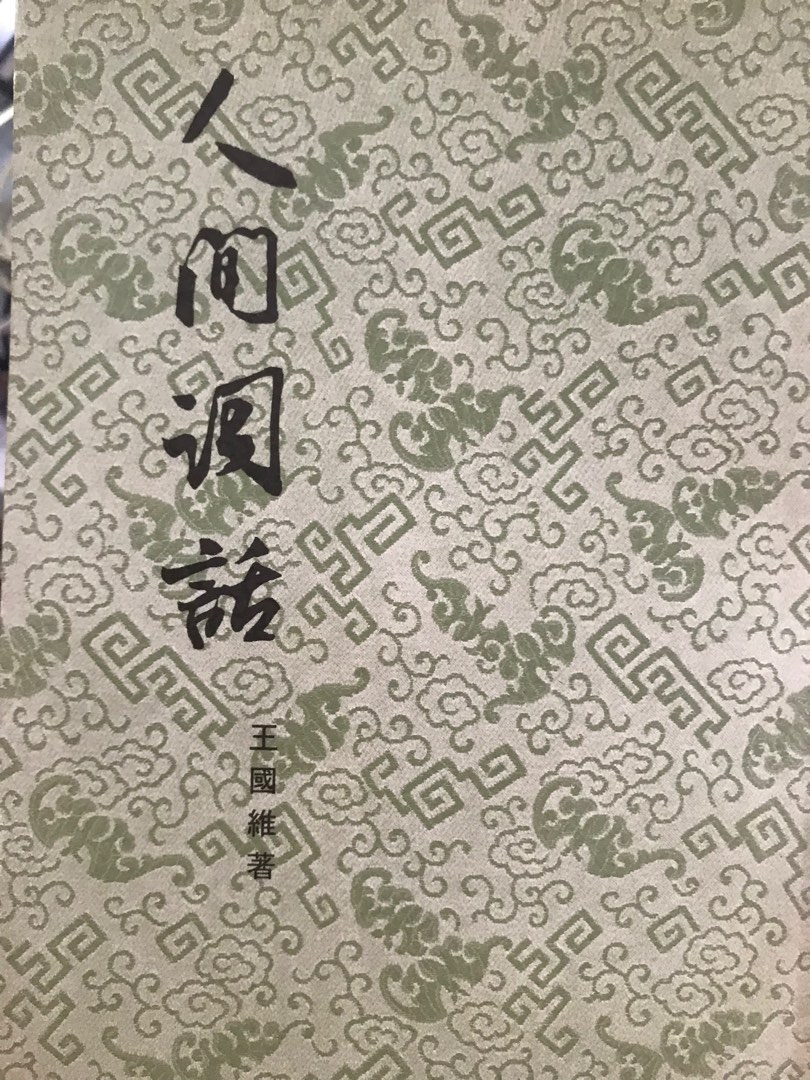 人間詞話
王國維著